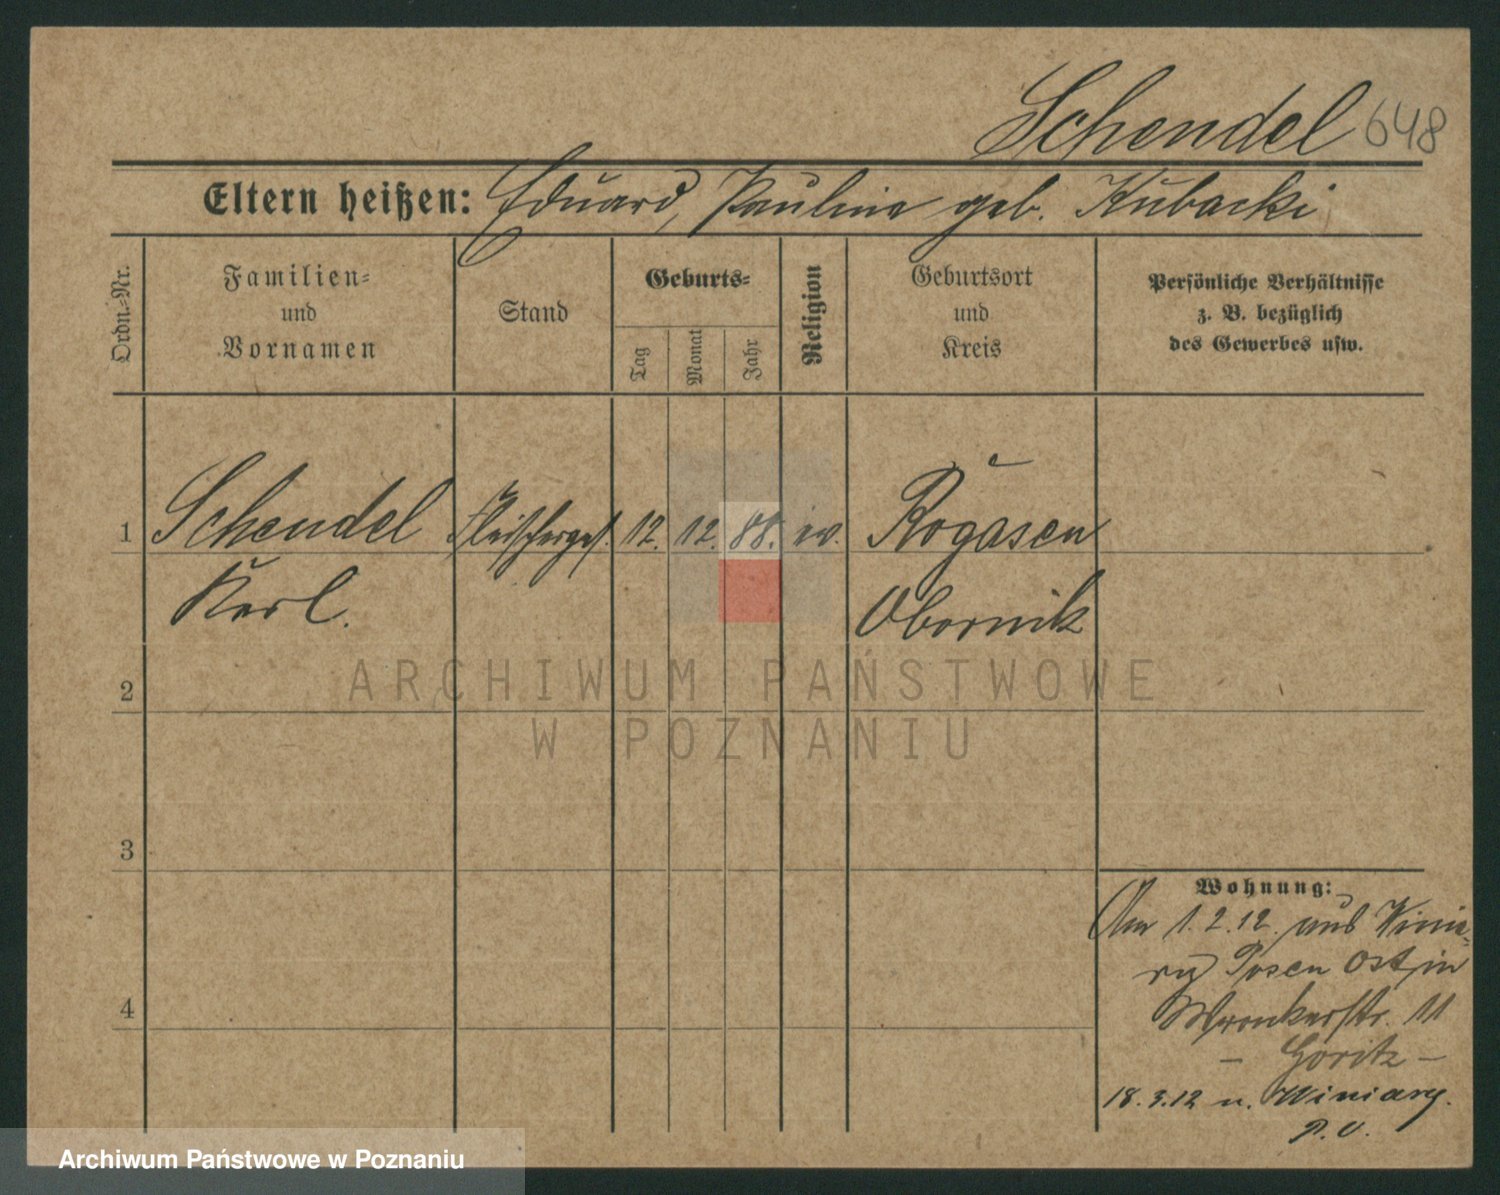 Schendel 648
Eltern heißen: Eduard, Pauline geb. Kubacki
Ordn.-Nr.
Familien-
und
Vornamen
Stand
Geburts-
Tag
Monat
Jahr
Religion
Geburtsort
und
Kreis
Persönliche Verhältnisse
z. B. bezüglich
des Gewerbes usw.
1 Schendel Fleischerges. 12. 12. 88. ev. Rogasen
Karl. Obornik
2
3
4
Wohnung:
Am 1.2.12. aus Winia-
ry Posen Ost, in
Wronkerstr. 11
- Goritz -
18.3.12 n. Winiary.
P.O.
ARCHIWUM PAŃSTWOWE
W POZNANIU
Archiwum Państwowe w Poznaniu